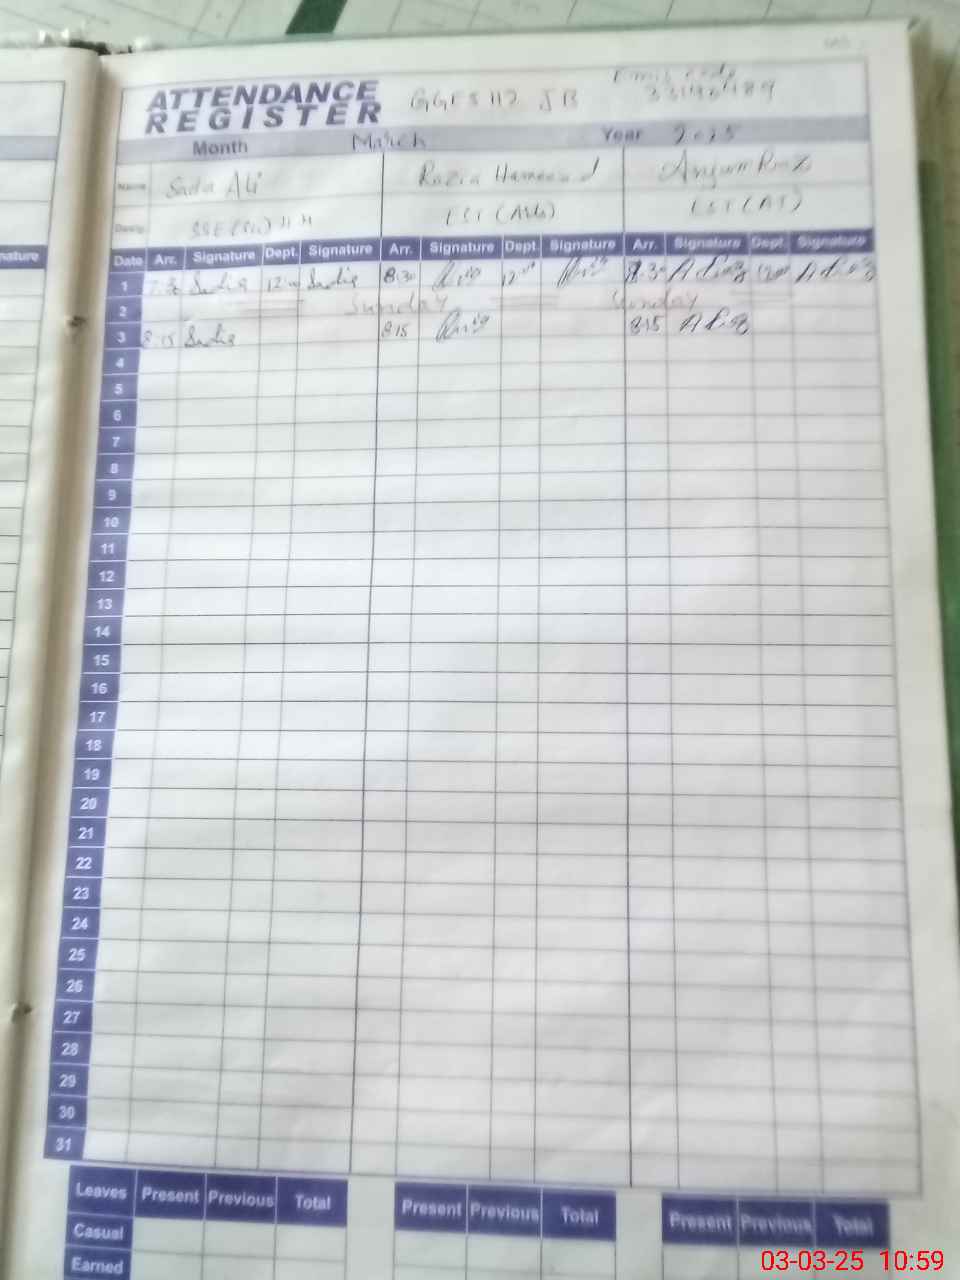 ATTENDANCE
REGISTER
GGES 112 JB
33140489
Month March Year 2025
Name Ali Razia Hameed Anjum
Desig. EST (Arts) EST (AT)
nature
Date Arr. Signature Dept. Signature Arr. Signature Dept. Signature Arr. Signature Dept. Signature
1 7:30 Sadia 12:00 Sadia 8:30 12:00 8:30 12:00
2 Sunday Sunday
3 8:15 Sadia 8:15 8:15
4
5
6
7
8
9
10
11
12
13
14
15
16
17
18
19
20
21
22
23
24
25
26
27
28
29
30
31
Leaves Present Previous Total Present Previous Total Present Previous Total
Casual
Earned
03-03-25 10:59